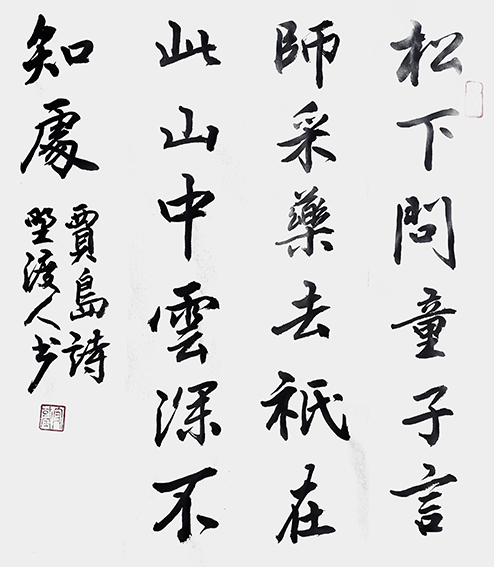 松下問童子言
師采藥去祇在
此山中雲深不
知處
賈島詩
野渡人书